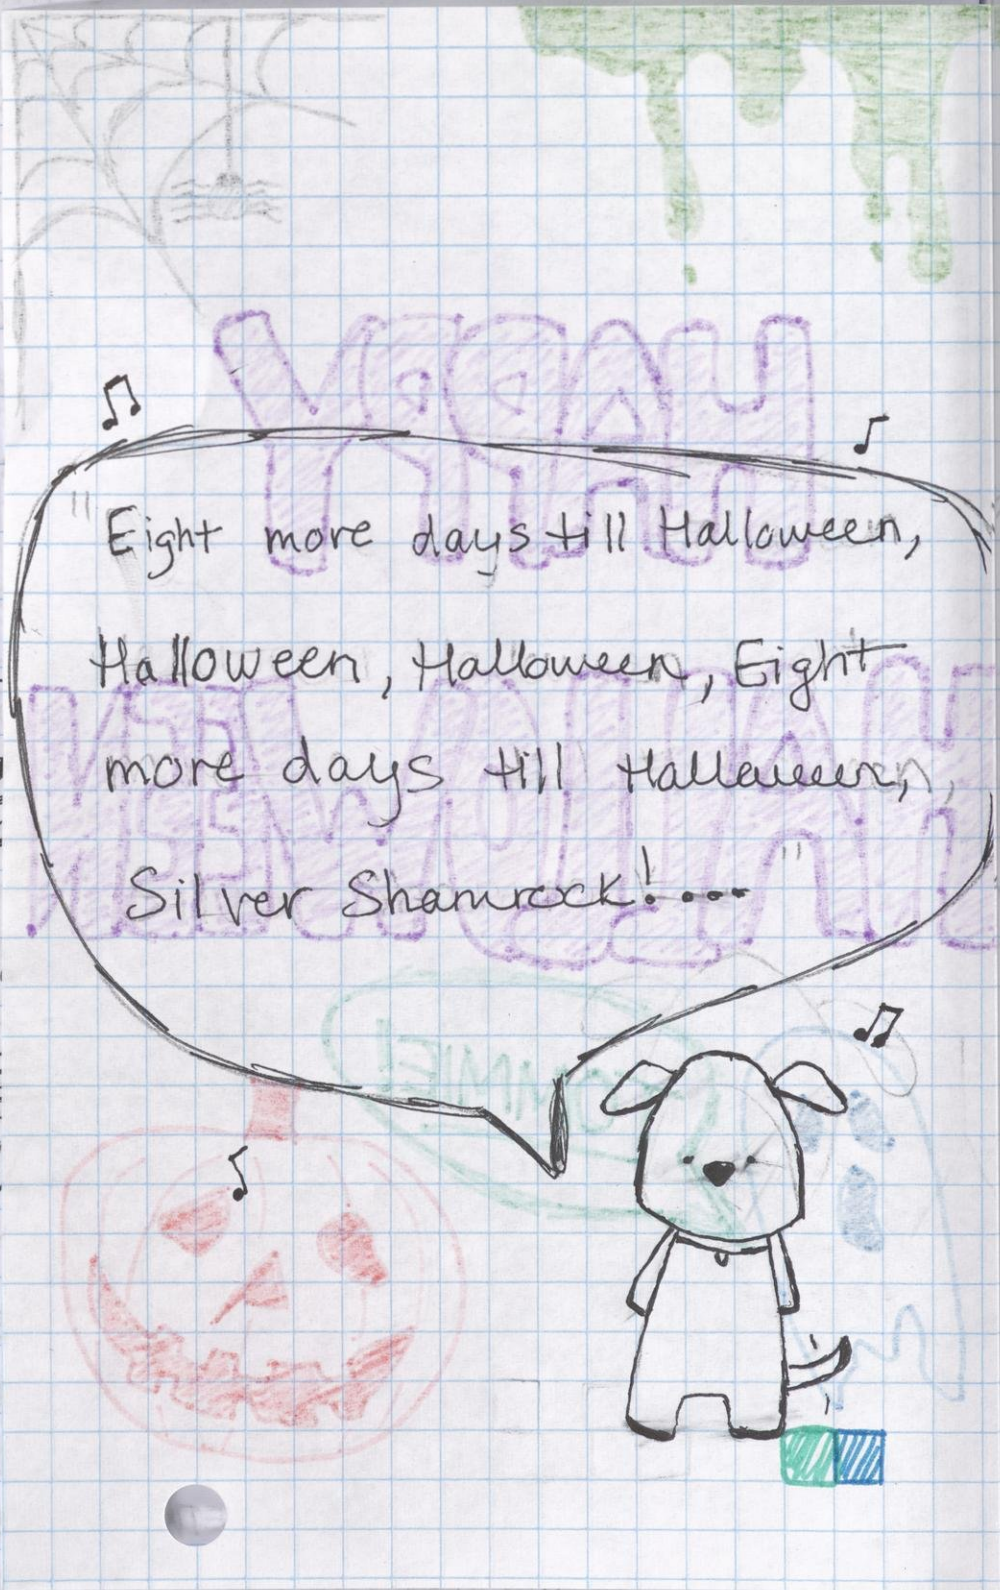 "Eight more days till Halloween,
Halloween, Halloween, Eight
more days till Halloween,
Silver Shamrock!..."
HAPPY
HALLOWEEN